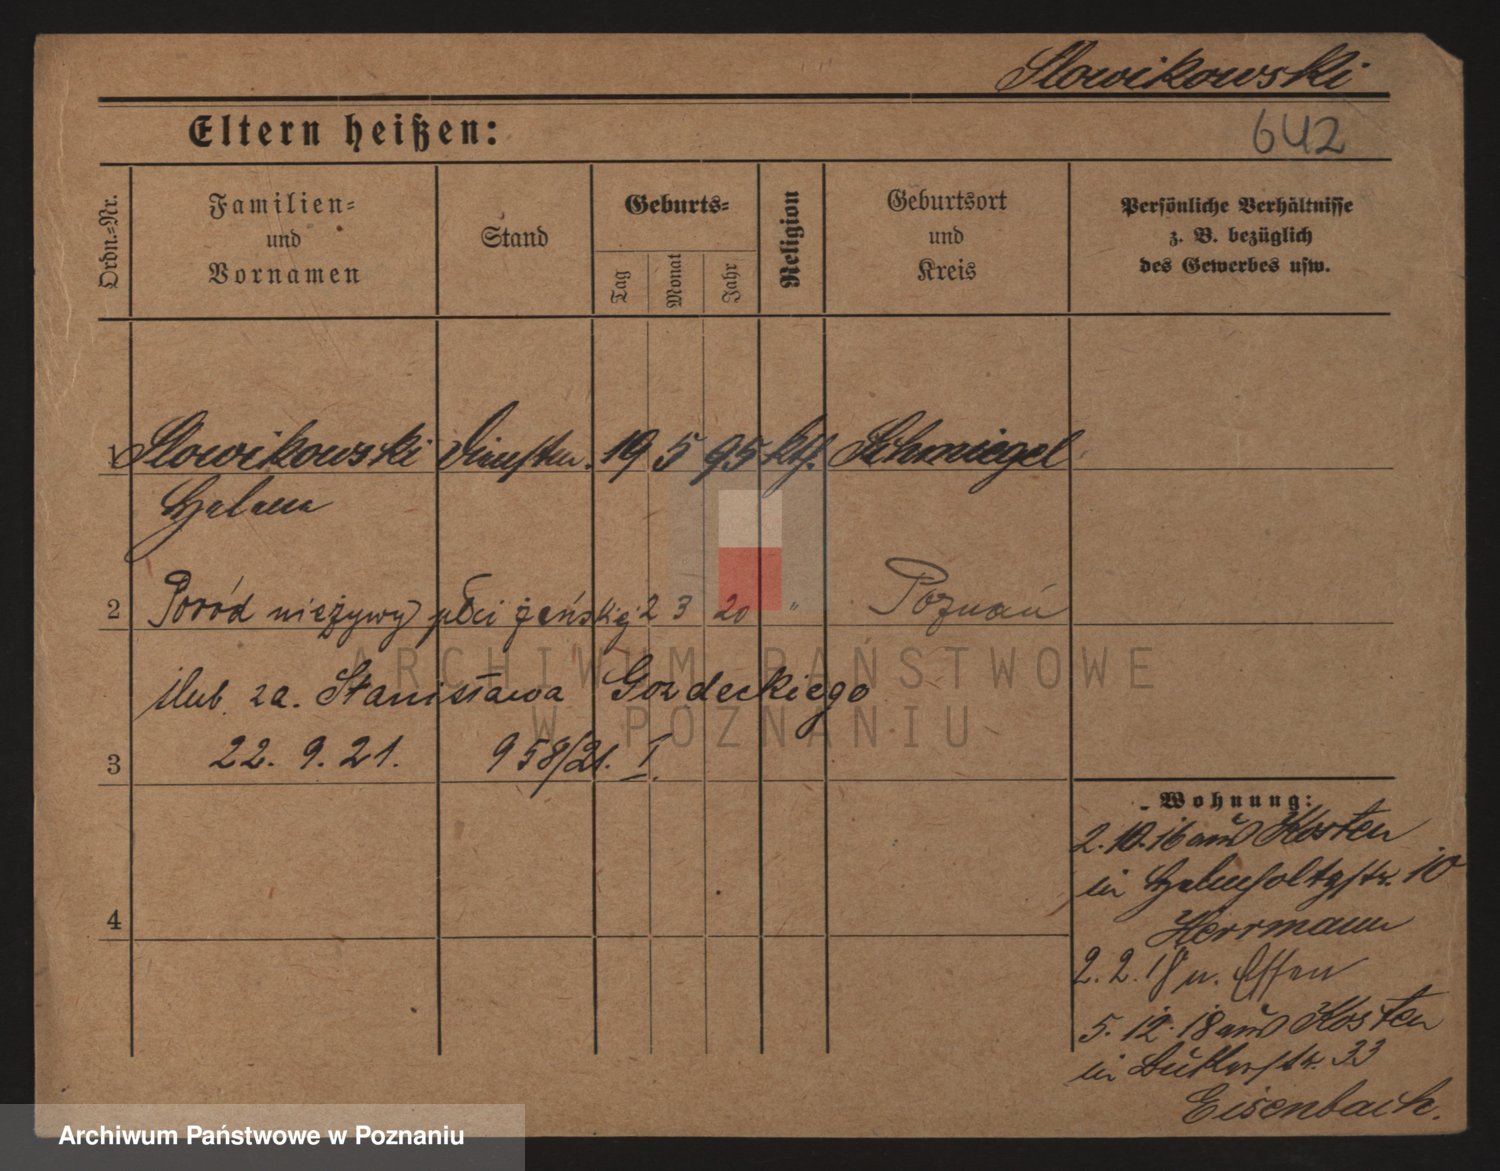 Slowikowski
Eltern heißen:
642
Ordn.-Nr.
Familien-
und
Vornamen
Stand
Geburts-
Tag
Monat
Jahr
Religion
Geburtsort
und
Kreis
Persönliche Verhältnisse
z. B. bezüglich
des Gewerbes usw.
1 Slowikowski 19 5 95 kth. Schmiegel
Helena
2 Poród nieżywy płci żeńskiej 2 3 20 " Poznań
ślub za. Stanisława Gozdeckiego
3 22. 9. 21. 958/21. I.
4
Wohnung:
2. 10. 16 aus Kosten
in Helmholtzstr. 10
Herrmann
2. 2. 18 n. Essen
5. 12. 18 aus Kosten
in 33
Eisenbach.
ARCHIWUM PAŃSTWOWE
W POZNANIU
Archiwum Państwowe w Poznaniu